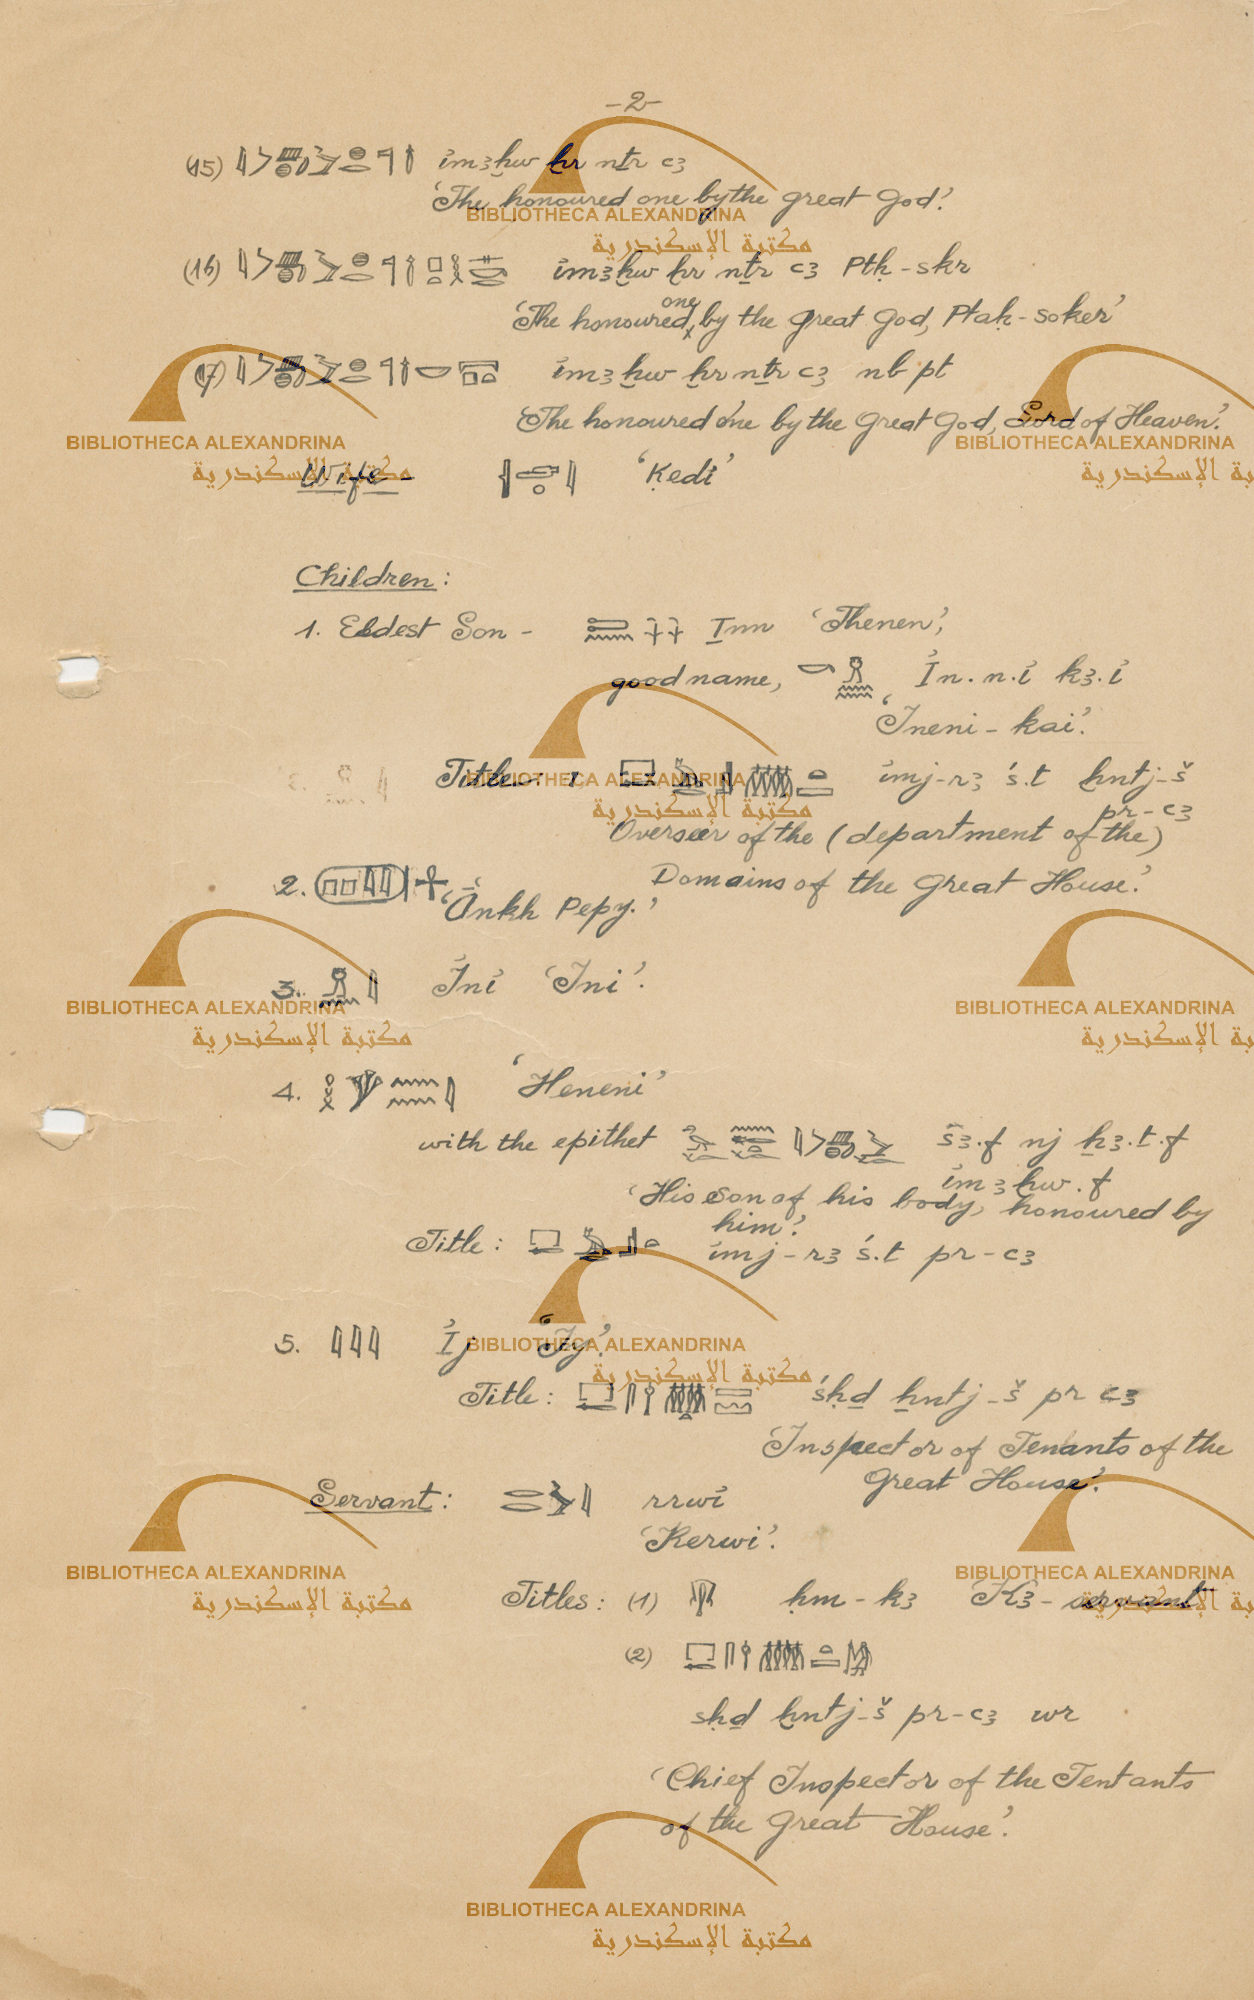 -2-
(15) 𓇋𓌳𓐍𓅱𓐍𓂋𓊹𓉻 ỉmꜣḫw ḫr nṯr ꜥꜣ
'The honoured one by the great God'.
(16) ỉmꜣḫw ḫr nṯr ꜥꜣ Ptḥ - skr
'The honoured one by the great God, Ptaḥ - soker'
(17) ỉmꜣḫw ḫr nṯr ꜥꜣ nb pt
'The honoured one by the great God, Lord of Heaven'.
Wife 'Ḳedỉ'
Children:
1. Eldest Son - Ṯnn 'Thenen',
good name, Ỉn.n.ỉ kꜣ.ỉ
'Ineni - kai'.
Titles: 1 ỉmj-rꜣ ś.t ḫntj-š
pr-ꜥꜣ
Overseer of the (department of the)
Domains of the Great House'.
2. 'Ankh Pepy.'
3. Ỉnỉ 'Ini'.
4. 'Heneni'
with the epithet śꜣ.f nj ẖꜣ.t.f
ỉmꜣḫw.f
'His son of his body, honoured by
him'.
Title: ỉmj-rꜣ ś.t pr-ꜥꜣ
5. 𓇋𓇋𓇋 Ỉj 'Iy'.
Title: śḥḏ ḫntj-š pr ꜥꜣ
'Inspector of Tenants of the
Great House'.
Servant: rrwỉ
'Rerwi'.
Titles: (1) ḥm - kꜣ 'Kꜣ - servant
(2)
sḥḏ ḫntj-š pr-ꜥꜣ wr
'Chief Inspector of the Tentants
of the Great House'.
BIBLIOTHECA ALEXANDRINA
مكتبة الإسكندرية